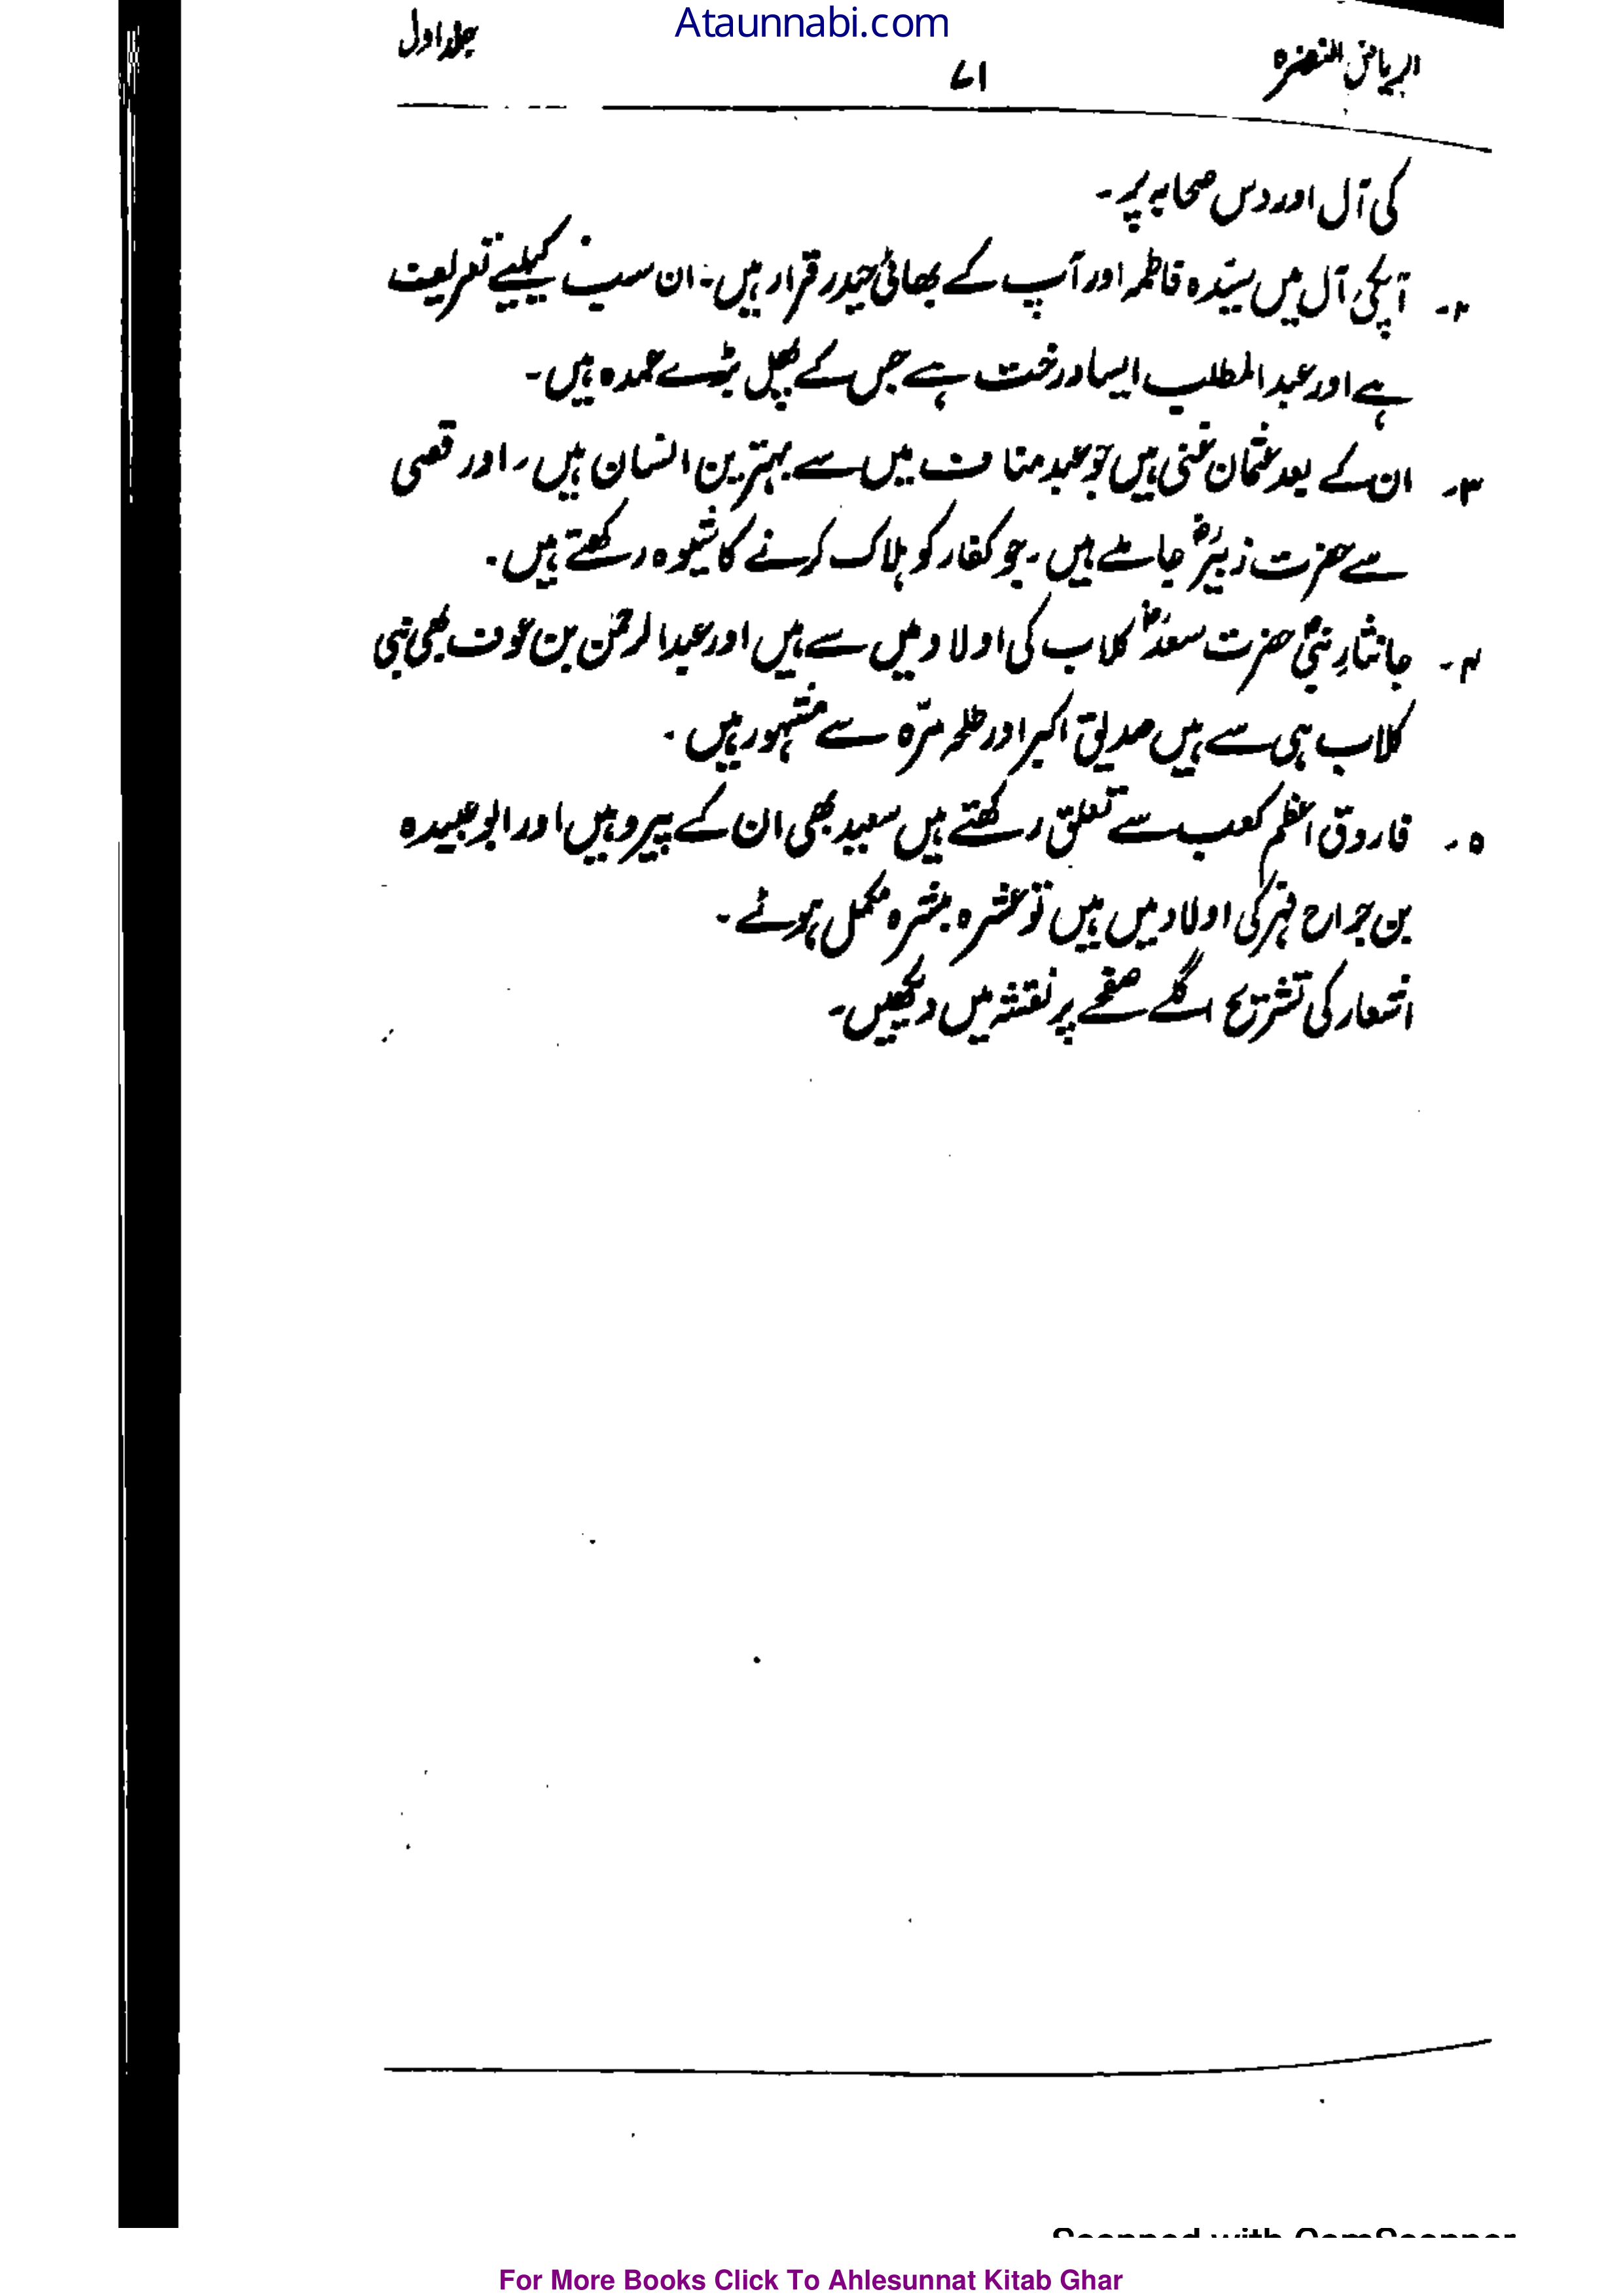 Ataunnabi.com
الریاض النضرہ ۷۱ جلد اول
کی آل اور دس صحابہ پر۔
۲۔ آپکی آل میں سیّدہ فاطمہ اور آپ کے بھائی حیدر قرار ہیں۔ ان سب کیلیے تعریف
ہے اور عبدالمطلب ایسا درخت ہے جس کے پھل بڑے عمدہ ہیں۔
۳۔ ان کے بعد عثمان غنی ہیں جو عبد مناف میں سے بہترین انسان ہیں۔ اور قصی
سے حضرت زبیرؓ جا ملے ہیں۔ جو کفار کو ہلاک کرنے کا شیوہ رکھتے ہیں۔
۴۔ جانثارِ نبیؐ حضرت سعدؓ کلاب کی اولاد میں سے ہیں اور عبدالرحمٰن بن عوف بھی بنی
کلاب ہی سے ہیں صدیق اکبر اور طلحہ مرّہ سے مشہور ہیں۔
۵۔ فاروق اعظم کعب سے تعلق رکھتے ہیں سعید بھی ان کے پیرو ہیں اور ابو عبیدہ
بن جراح فہر کی اولاد میں ہیں تو عشرہ مبشرہ مکمل ہوئے۔
اشعار کی تشریح اگلے صفحے پر نقشہ میں دیکھیں۔
Scanned with CamScanner
For More Books Click To Ahlesunnat Kitab Ghar